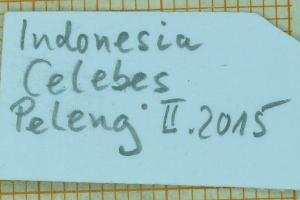 Indonesia
Celebes
Peleng II.2015